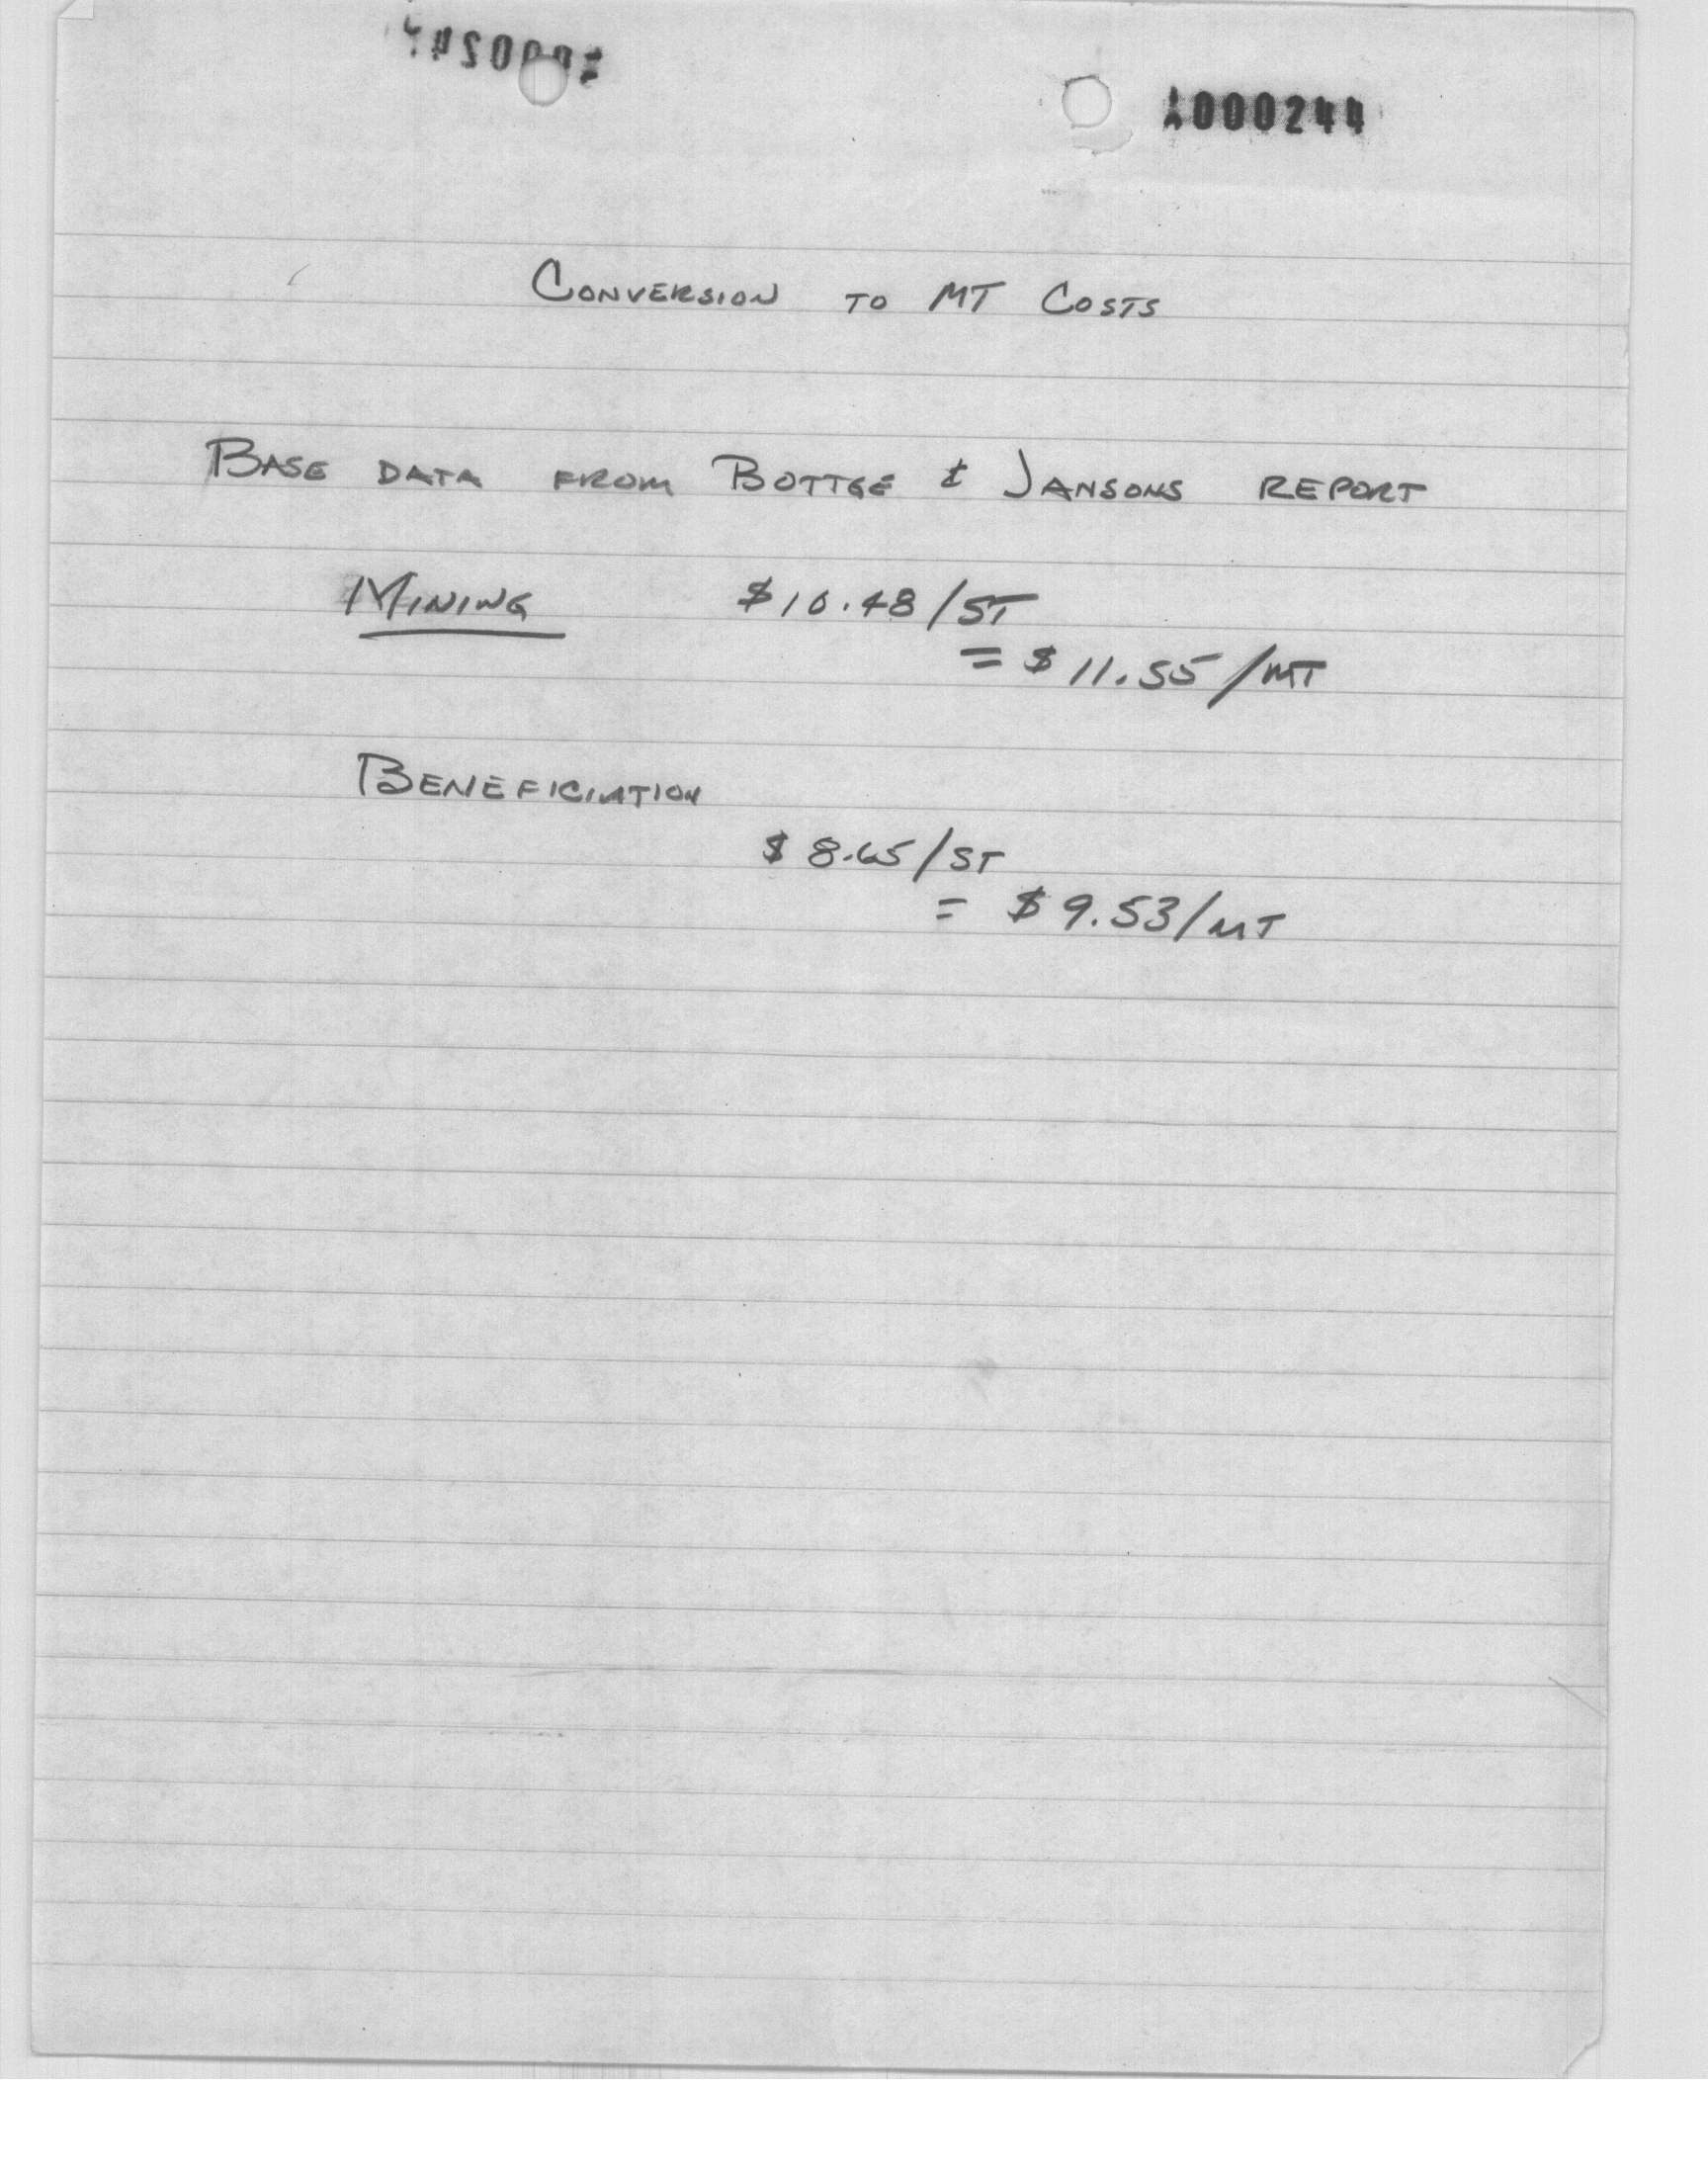 A000244
CONVERSION TO MT COSTS
BASE DATA FROM BOTTGE & JANSONS REPORT
MINING $10.48/ST
= $11.55/MT
BENEFICIATION
$8.65/ST
= $9.53/MT